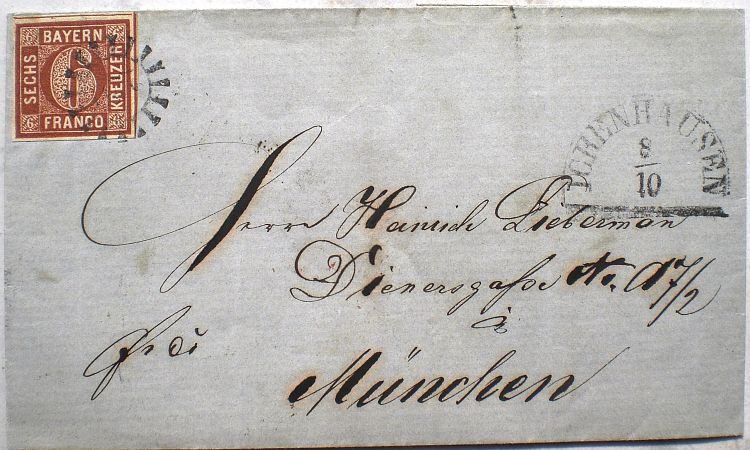 BAYERN
SECHS
KREUZER
FRANCO
6
6 6 6
ICHENHAUSEN
8
10
Herrn Heinrich Lieberman
Dienersgaße No. 17/2
à
München